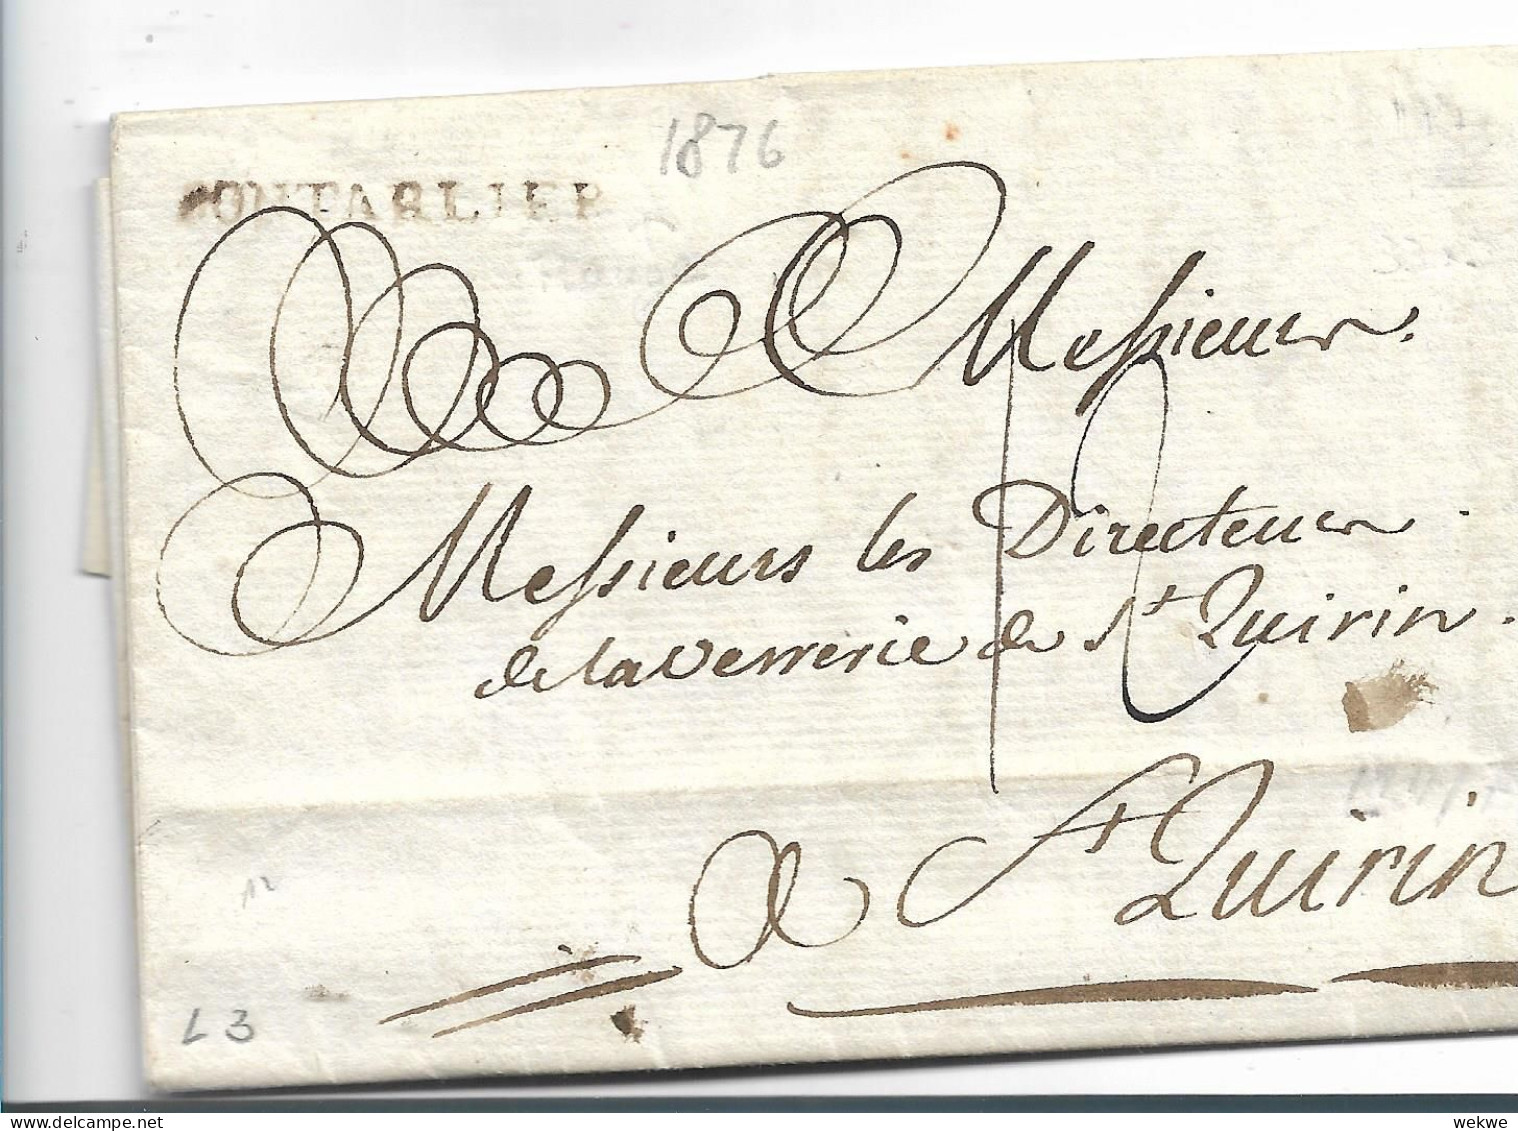 1876
PONTARLIER
Messieurs.
Messieurs les Directeurs
de la verrerie de St Quirin.
12
a St Quirin
12
L 3
wekwe